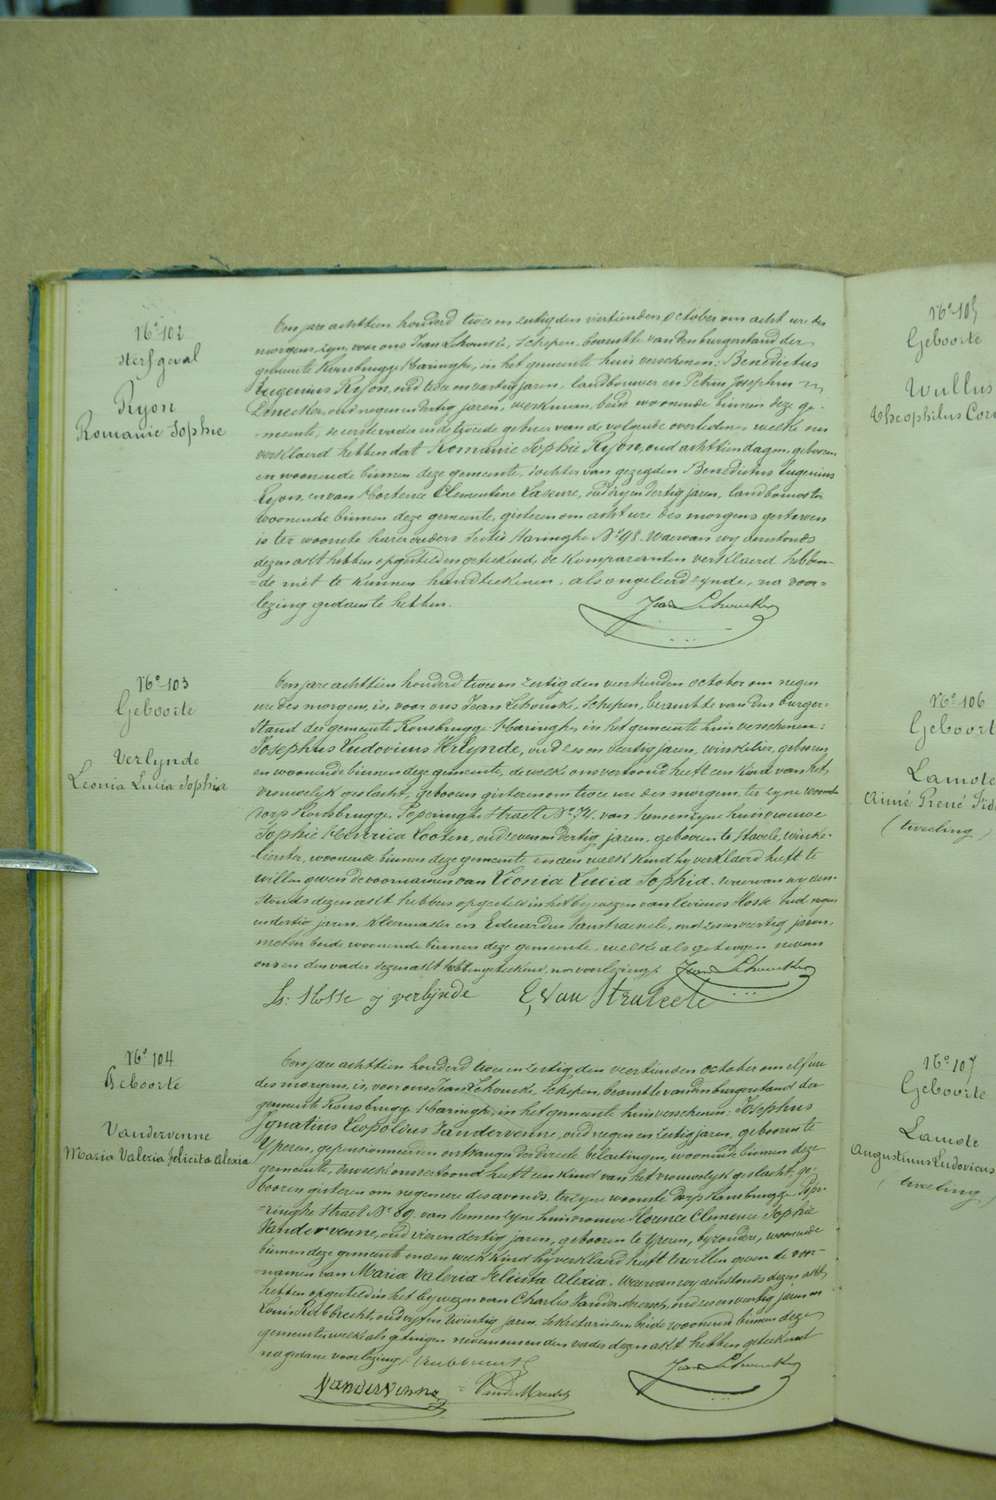 No 102
sterfgeval
Ryon
Romanie Sophie
Een jare achttien honderd twee en zestig den veertienden october om acht ure des
morgens, zyn, voor ons Jean Lehoucke, Schepen, beambte van den burgerstand der
gemeente Ronsbrugge-Haringhe, in het gemeente huis verschenen: Benedictus
Eugenius Ryon, oud twee en veertig jaren, landbouwer en Petrus Josephus
oud negen en dertig jaren, werkman, beide woonende binnen deze ge-
meente, de eerste vader en de tweede gebuer van de volgende overledene welke ons
verklaerd hebben dat Romanie Sophie Ryon, oud achttien dagen, geboren
en woonende binnen deze gemeente, dochter van gezegden Benedictus Eugenius
Ryon, en van Hortence Clementine oud dry en dertig jaren, landbouwster
woonende binnen deze gemeente, gisteren om acht ure des morgens gestorven
is ter woonste harer ouders Sectie Haringhe No 48. Waervan wy aenstonds
dezen akt hebben opgesteld en geteekend, de komparanten verklaerd hebben-
=de niet te kunnen handteekenen, als ongeleerd zynde, na voor=
lezing gedaen te hebben.
Jean Lehoucke
No 103
Geboorte
Verlynde
Leonia Lucia Sophia
Een jare achttien honderd twee en zestig den veertienden october om negen
ure des morgens, is, voor ons Jean Lehoucke, Schepen, beambte van den burger-
stand der gemeente Ronsbrugge-Haringhe, in het gemeente huis verschenen:
Josephus Ludovicus Verlynde, oud zes en veertig jaren, winkelier, geboren
en woonende binnen deze gemeente, dewelke ons vertoond heeft een kind van het
vrouwelyk geslacht, geboren gisteren om twee ure des morgens, ter zyne woonste
dorp Ronsbrugge, Poperinghe straet No 74. van hem en zyne huisvrouwe
Sophie Looten, oud zeven en dertig jaren, geboren te Stavele, winke-
lierster, woonende binnen deze gemeente en aen welk kind hy verklaerd heeft te
willen geven de voornamen van Leonia Lucia Sophia. Waervan wy aen-
stonds dezen akt hebben opgesteld in het bywezen van Livinus Hosse, oud negen
en dertig jaren, kleermaker en Eduardus Vanstraceele, oud zes en veertig jaren,
beide woonende binnen deze gemeente, welke als getuigen nevens
ons en den vader dezen akt hebben geteekend, na voorlezing.
Jean Lehoucke
L: Hosse j verlynde E, Van Straceele
No 104
Geboorte
Vandervenne
Maria Valeria Felicita Alexia
Een jare achttien honderd twee en zestig den veertienden october om elf ure
des morgens, is, voor ons Jean Lehoucke, Schepen, beambte van den burgerstand der
gemeente Ronsbrugge-Haringhe, in het gemeente huis verschenen: Josephus
Ignatius Leopoldus Vandervenne, oud negen en zestig jaren, geboren te
Yperen, gepensionneerden ontvanger der directe belastingen, woonende binnen deze
gemeente, dewelke ons vertoond heeft een kind van het vrouwelyk geslacht, ge-
boren gisteren om negen ure des avonds, ter zyne woonste dorp Ronsbrugge, Pope-
=ringhe straet No 69. van hem en zyne huisvrouwe Florence Clemence Sophie
Vandervenne, oud vier en dertig jaren, geboren te Yperen, byzondere, woonende
binnen deze gemeente en aen welk kind hy verklaerd heeft te willen geven de voor-
=namen van Maria Valeria Felicita Alexia. Waervan wy aenstonds dezen akt
hebben opgesteld in het bywezen van Charles Vander Meersch, oud zes en veertig jaren en
Louis Rubbrecht, oud vyf en twintig jaren, Sekretarissen beide woonende binnen deze
gemeente, welke als getuigen nevens ons en den vader dezen akt hebben geteekend
na gedane voorlezing.
Vandervenne
Jean Lehoucke
No 105
Geboorte
Wullus
Theophilus Cor
No 106
Geboort
Lamote
Aimé René
(tweeling)
No 107
Geboorte
Lamote
Augustinus Ludovicus
(tweeling)